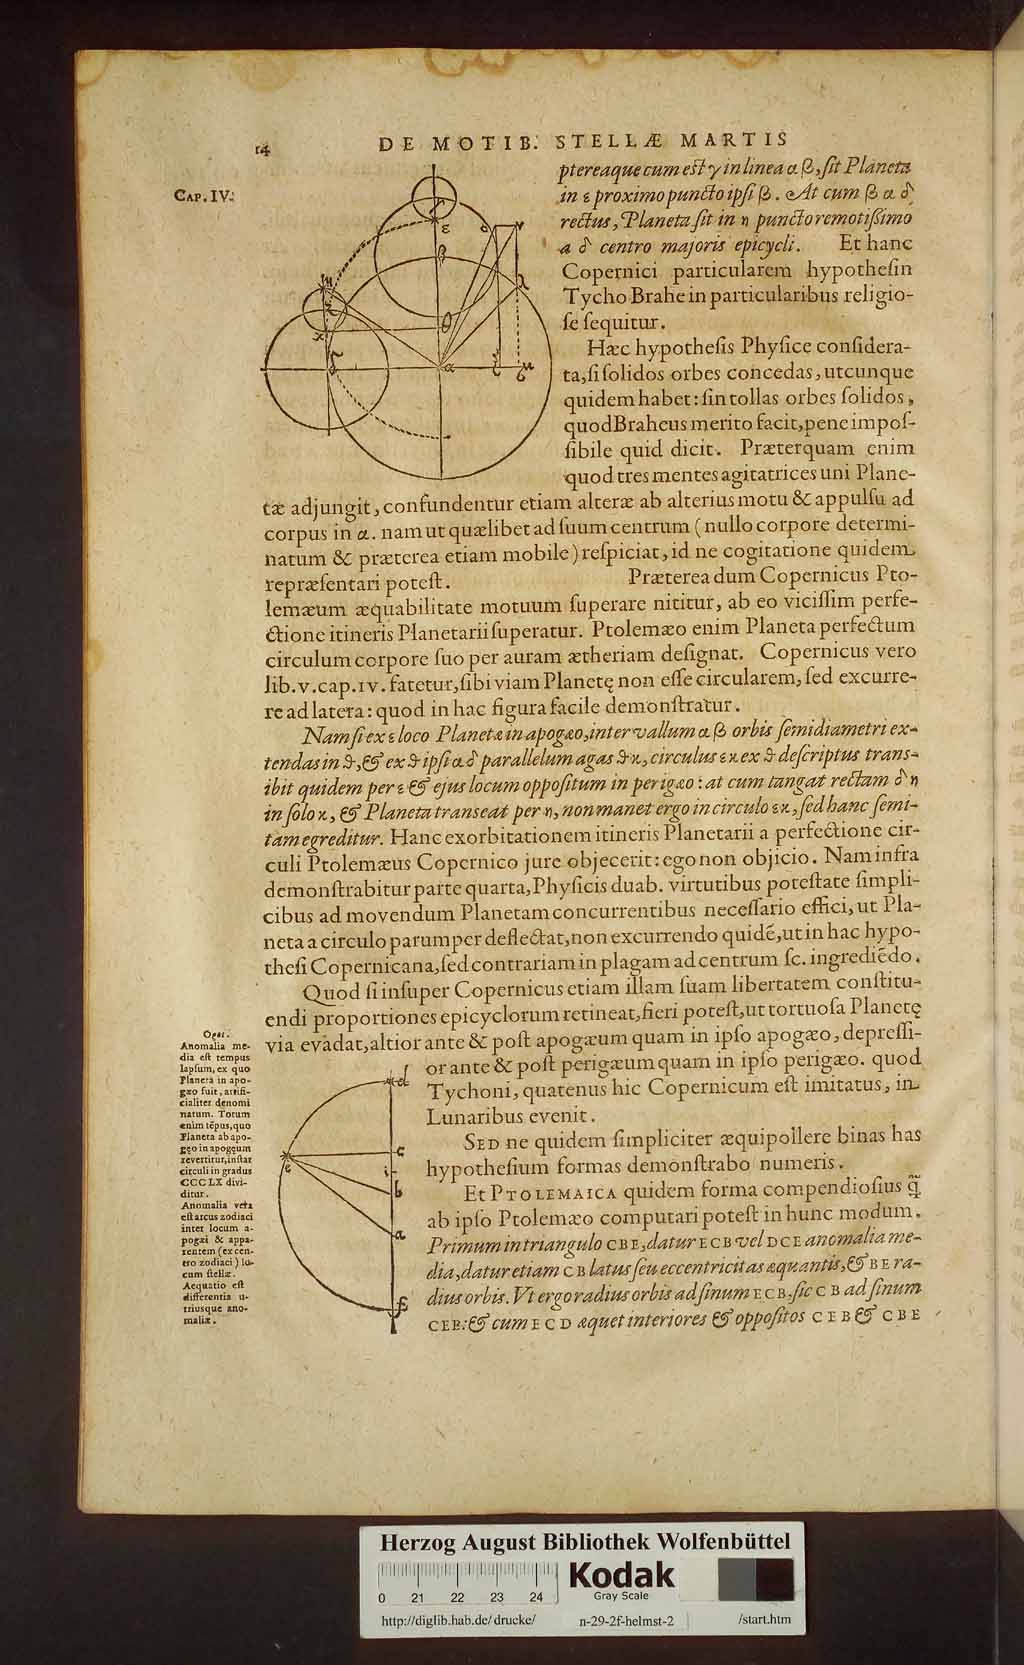 14
DE MOTIB. STELLÆ MARTIS
CAP. IV.
ptereaque cum est γ in linea α β, sit Planeta
in ε proximo puncto ipsi β. At cum β α δ
rectus, Planeta sit in η puncto remotißimo
a δ centro majoris epicycli. Et hanc
Copernici particularem hypothesin
Tycho Brahe in particularibus religio-
se sequitur.
Hæc hypothesis Physice considera-
ta, si solidos orbes concedas, utcunque
quidem habet: sin tollas orbes solidos,
quod Braheus merito facit, pene impos-
sibile quid dicit. Præterquam enim
quod tres mentes agitatrices uni Plane-
tæ adjungit, confundentur etiam alteræ ab alterius motu & appulsu ad
corpus in α. nam ut quælibet ad suum centrum (nullo corpore determi-
natum & præterea etiam mobile) respiciat, id ne cogitatione quidem
repræsentari potest. Præterea dum Copernicus Pto-
lemæum æquabilitate motuum superare nititur, ab eo vicissim perfe-
ctione itineris Planetarii superatur. Ptolemæo enim Planeta perfectum
circulum corpore suo per auram ætheriam designat. Copernicus vero
lib. v. cap. IV. fatetur, sibi viam Planetę non esse circularem, sed excurre-
re ad latera: quod in hac figura facile demonstratur.
Nam si ex ε loco Planetæ in apogæo, intervallum α β orbis semidiametri ex-
tendas in θ, & ex θ ipsi α δ parallelum agas θ κ, circulus ε κ ex θ descriptus trans-
ibit quidem per ε & ejus locum oppositum in perigæo: at cum tangat rectam δ η
in solo κ, & Planeta transeat per η, non manet ergo in circulo ε κ, sed hanc semi-
tam egreditur. Hanc exorbitationem itineris Planetarii a perfectione cir-
culi Ptolemæus Copernico jure objecerit: ego non objicio. Nam infra
demonstrabitur parte quarta, Physicis duab. virtutibus potestate simpli-
cibus ad movendum Planetam concurrentibus necessario effici, ut Pla-
neta a circulo parumper deflectat, non excurrendo quidẽ, ut in hac hypo-
thesi Copernicana, sed contrariam in plagam ad centrum sc. ingrediẽdo.
Quod si insuper Copernicus etiam illam suam libertatem constitu-
endi proportiones epicyclorum retineat, fieri potest, ut tortuosa Planetę
via evadat, altior ante & post apogæum quam in ipso apogæo, depressi-
or ante & post perigæum quam in ipso perigæo. quod
Tychoni, quatenus hic Copernicum est imitatus, in
Lunaribus evenit.
SED ne quidem simpliciter æquipollere binas has
hypothesium formas demonstrabo numeris.
Et PTOLEMAICA quidem forma compendiosius q̃
ab ipso Ptolemæo computari potest in hunc modum.
Primum in triangulo CBE, datur ECB vel DCE anomalia me-
dia, datur etiam CB latus seu eccentricitas æquantis, & BE ra-
dius orbis. Vt ergo radius orbis ad sinum ECB, sic CB ad sinum
CEB: & cum ECD æquet interiores & oppositos CEB & CBE
Anomalia me-
dia est tempus
lapsum, ex quo
Planeta in apo-
gæo fuit, artifi-
cialiter denomi
natum. Totum
enim tẽpus, quo
Planeta ab apo-
gęo in apogęum
revertitur, instar
circuli in gradus
CCCLX divi-
ditur.
Anomalia vera
est arcus zodiaci
inter locum a-
pogæi & appa-
rentem (ex cen-
tro zodiaci) lo-
cum stellæ.
Aequatio est
differentia u-
triusque ano-
maliæ.
ε
β
γ
λ
η
κ
θ
δ
α
d
c
e
i
b
a
f
Herzog August Bibliothek Wolfenbüttel
Kodak
Gray Scale
0 21 22 23 24
http://diglib.hab.de/drucke/ n-29-2f-helmst-2 /start.htm